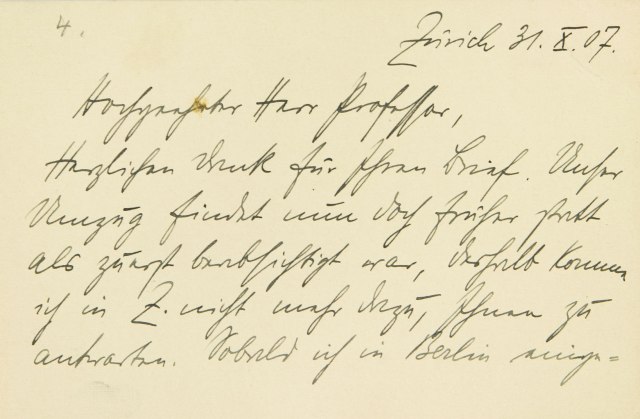 4.
Zürich 31. X. 07.
Hochgeehrter Herr Professor,
Herzlichen Dank für Ihren Brief. Unser
Umzug findet nun doch früher statt
als zuerst beabsichtigt war, deshalb komme
ich in Z. nicht mehr dazu, Ihnen zu
antworten. Sobald ich in Berlin einge=